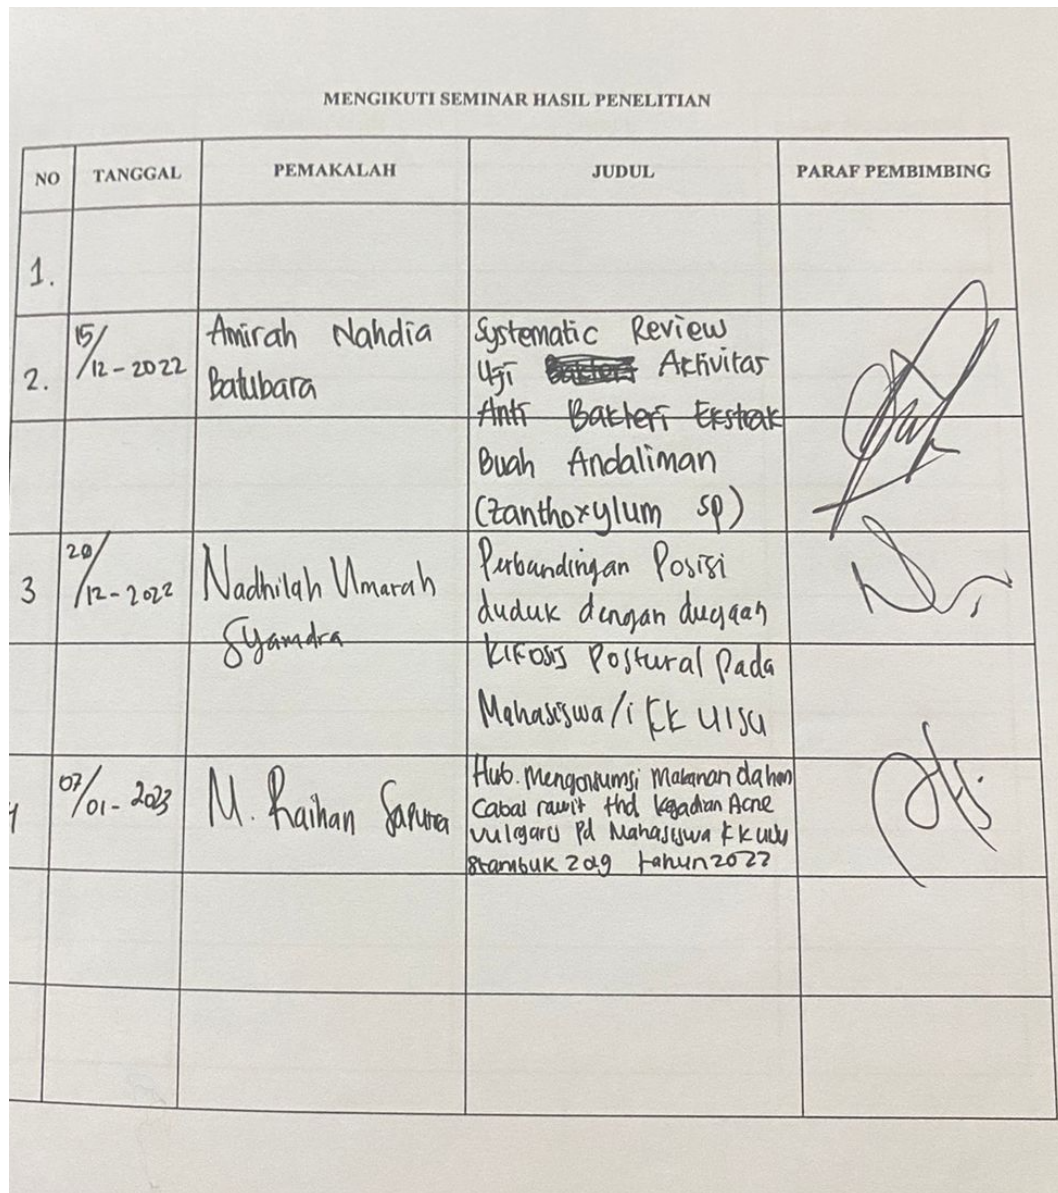 MENGIKUTI SEMINAR HASIL PENELITIAN
NO TANGGAL PEMAKALAH JUDUL PARAF PEMBIMBING
1.
2. 15/12-2022 Amirah Nahdia Batubara
Systematic Review
Uji Aktivitas
Anti Bakteri Ekstrak
Buah Andaliman
(Zanthoxylum sp)
3 20/12-2022 Nadhilah Umarah Syamdra
Perbandingan Posisi
duduk dengan dugaan
Kifosis Postural Pada
Mahasiswa/i FK UISU
07/01-2023 M. Raihan Saputra
Hub. Mengonsumsi Makanan dahan
Cabai rawit thd kejadian Acne
vulgaris Pd Mahasiswa FK
Stambuk 2019 tahun 2022